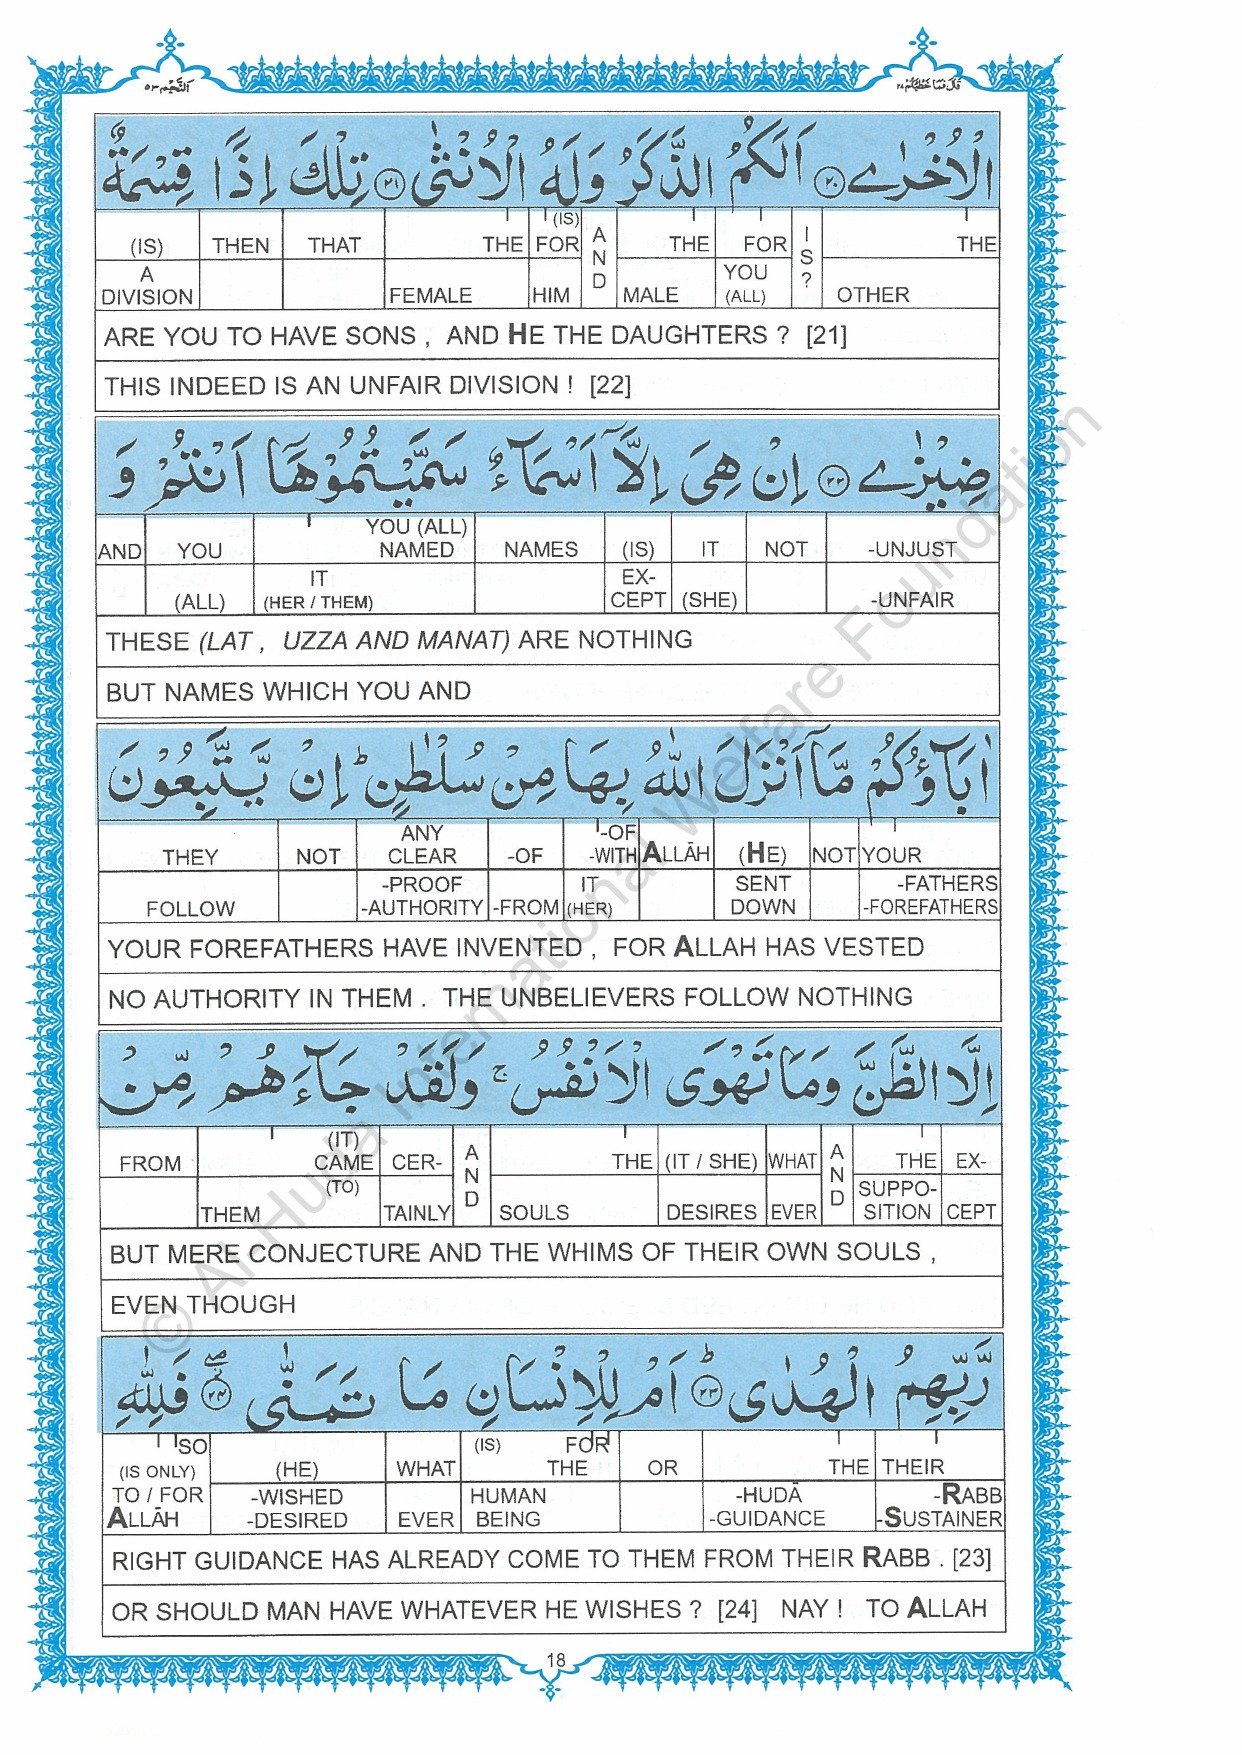 النَّجْم ٥٣
قَالَ فَمَا خَطْبُكُمْ ٢٧
الْاُخْرٰى ۲۰ اَلَكُمُ الذَّكَرُ وَلَهُ الْاُنْثٰى ۲۱ تِلْكَ اِذًا قِسْمَةٌ
(IS) THEN THAT THE (IS) FOR AND THE FOR IS? THE
A DIVISION FEMALE HIM MALE YOU (ALL) OTHER
ARE YOU TO HAVE SONS , AND HE THE DAUGHTERS ? [21]
THIS INDEED IS AN UNFAIR DIVISION ! [22]
ضِيْزٰى ۲۲ اِنْ هِىَ اِلَّاۤ اَسْمَآءٌ سَمَّيْتُمُوْهَاۤ اَنْتُمْ وَ
AND YOU YOU (ALL) NAMED NAMES (IS) IT NOT -UNJUST
(ALL) IT (HER / THEM) EX- CEPT (SHE) -UNFAIR
THESE (LAT , UZZA AND MANAT) ARE NOTHING
BUT NAMES WHICH YOU AND
اٰبَآؤُكُمْ مَّاۤ اَنْزَلَ اللّٰهُ بِهَا مِنْ سُلْطٰنٍ ؕ اِنْ يَّتَّبِعُوْنَ
THEY NOT ANY CLEAR -OF -OF -WITH ALLĀH (HE) NOT YOUR
FOLLOW -PROOF -AUTHORITY -FROM IT (HER) SENT DOWN -FATHERS -FOREFATHERS
YOUR FOREFATHERS HAVE INVENTED , FOR ALLAH HAS VESTED
NO AUTHORITY IN THEM . THE UNBELIEVERS FOLLOW NOTHING
اِلَّا الظَّنَّ وَمَا تَهْوَى الْاَنْفُسُ ۚ وَلَقَدْ جَآءَهُمْ مِّنْ
FROM (IT) CAME CER- AND THE (IT / SHE) WHAT AND THE EX-
(TO) THEM TAINLY SOULS DESIRES EVER SUPPO- SITION CEPT
BUT MERE CONJECTURE AND THE WHIMS OF THEIR OWN SOULS ,
EVEN THOUGH
رَّبِّهِمُ الْهُدٰى ؕ ۲۳ اَمْ لِلْاِنْسَانِ مَا تَمَنّٰى ۲۴ فَلِلّٰهِ
SO (IS ONLY) (HE) WHAT (IS) FOR THE OR THE THEIR
TO / FOR ALLĀH -WISHED -DESIRED EVER HUMAN BEING -HUDĀ -GUIDANCE -RABB -SUSTAINER
RIGHT GUIDANCE HAS ALREADY COME TO THEM FROM THEIR RABB . [23]
OR SHOULD MAN HAVE WHATEVER HE WISHES ? [24] NAY ! TO ALLAH
18
© Al-Huda International Welfare Foundation